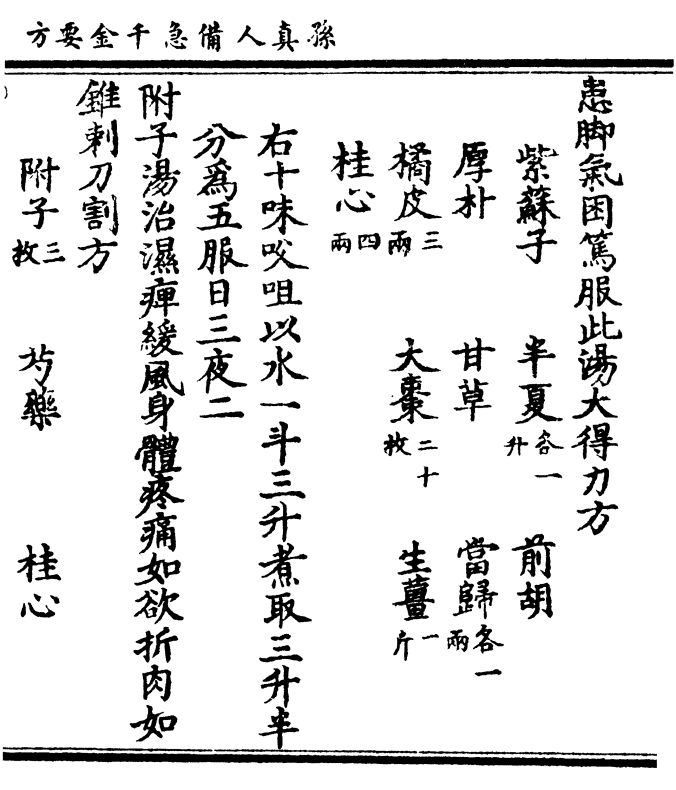 孫真人備急千金要方
患脚氣困篤服此湯大得力方
紫蘇子 半夏各一升 前胡
厚朴 甘草 當歸各一兩
橘皮三兩 大棗二十枚 生薑一斤
桂心四兩
右十味㕮咀以水一斗三升煮取三升半
分爲五服日三夜二
附子湯治濕痺緩風身體疼痛如欲折肉如
錐刺刀割方
附子三枚 芍藥 桂心